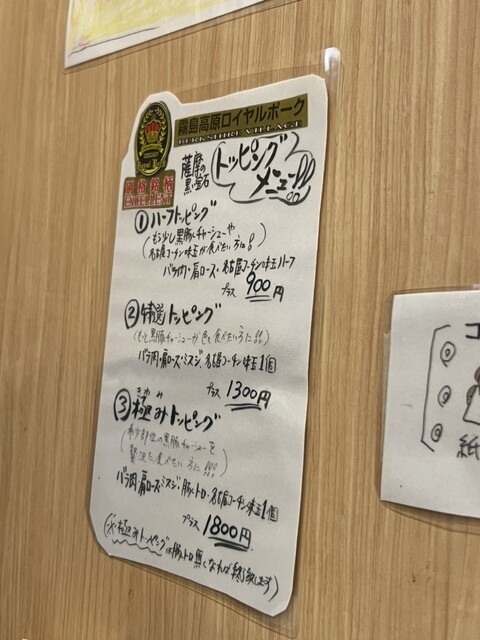 霧島高原ロイヤルポーク
BERKSHIRE VILLAGE
EXCELLENT
薩摩の
黒い宝石
トッピング
メニュー!!
①ハーフトッピング
(もう少し黒豚チャーシューや
名古屋コーチン味玉が食べたい方に!!
バラ肉・肩ロース・名古屋コーチン味玉ハーフ
プラス 900円
②特選トッピング
(もっと黒豚チャーシューが色々食べたい方に!!)
バラ肉・肩ロース・ミスジ・名古屋コーチン味玉1個
プラス 1300円
きわ
③極みトッピング
(希少部位の黒豚チャーシューを
贅沢に食べたい方に!!!)
バラ肉・肩ロース・ミスジ・豚トロ・名古屋コーチン味玉1個
プラス 1800円
(※極みトッピングは豚トロ無くなれば終了致します)
紙